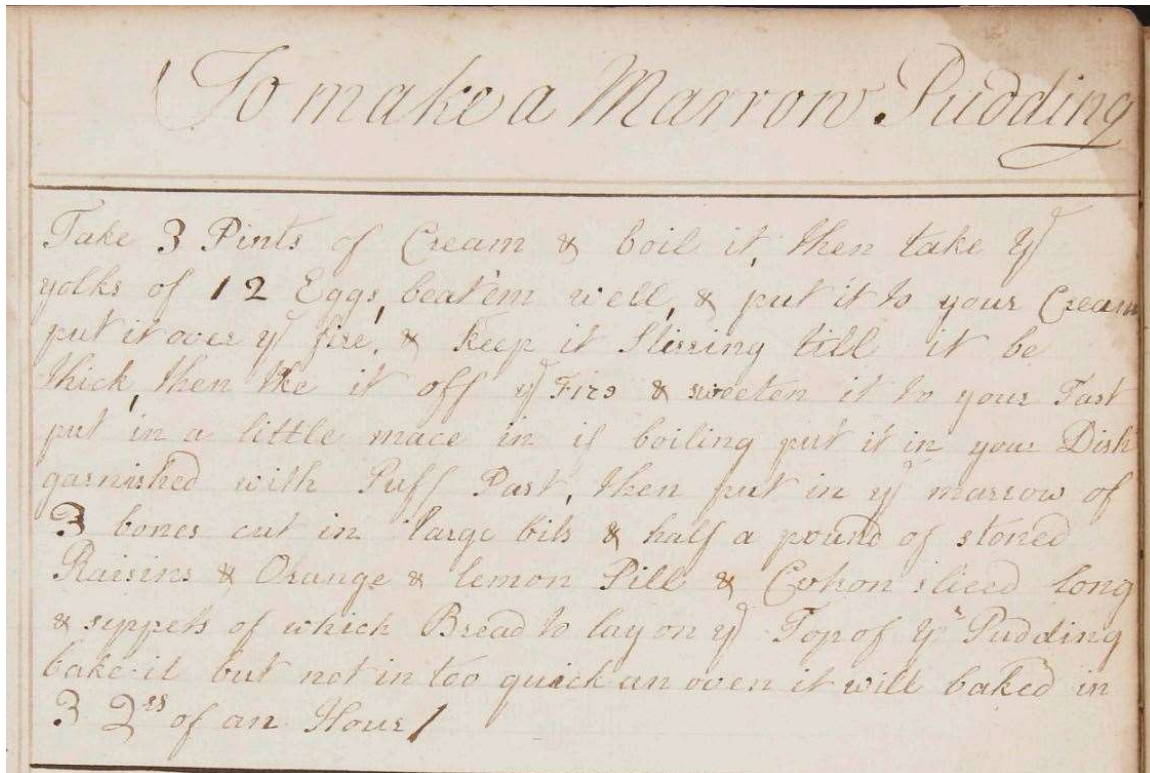 To make a Marrow Pudding
Take 3 Pints of Cream & boil it, then take ye
yolks of 12 Eggs, beat'em well, & put it to your Cream
put it over ye fire, & Keep it Stirring till it be
thick, then tke it off ye Fire & sweeten it to your Tast
put in a little mace in if boiling put it in your Dish
garnished with Puff Past, then put in ye marrow of
3 bones cut in large bits & half a pound of stoned
Raisins & Orange & lemon Pill & sliced long
& seppets of which Bread to lay on ye Top of ye Pudding
bake it but not in too quick an oven it will baked in
3 2rs of an Hour